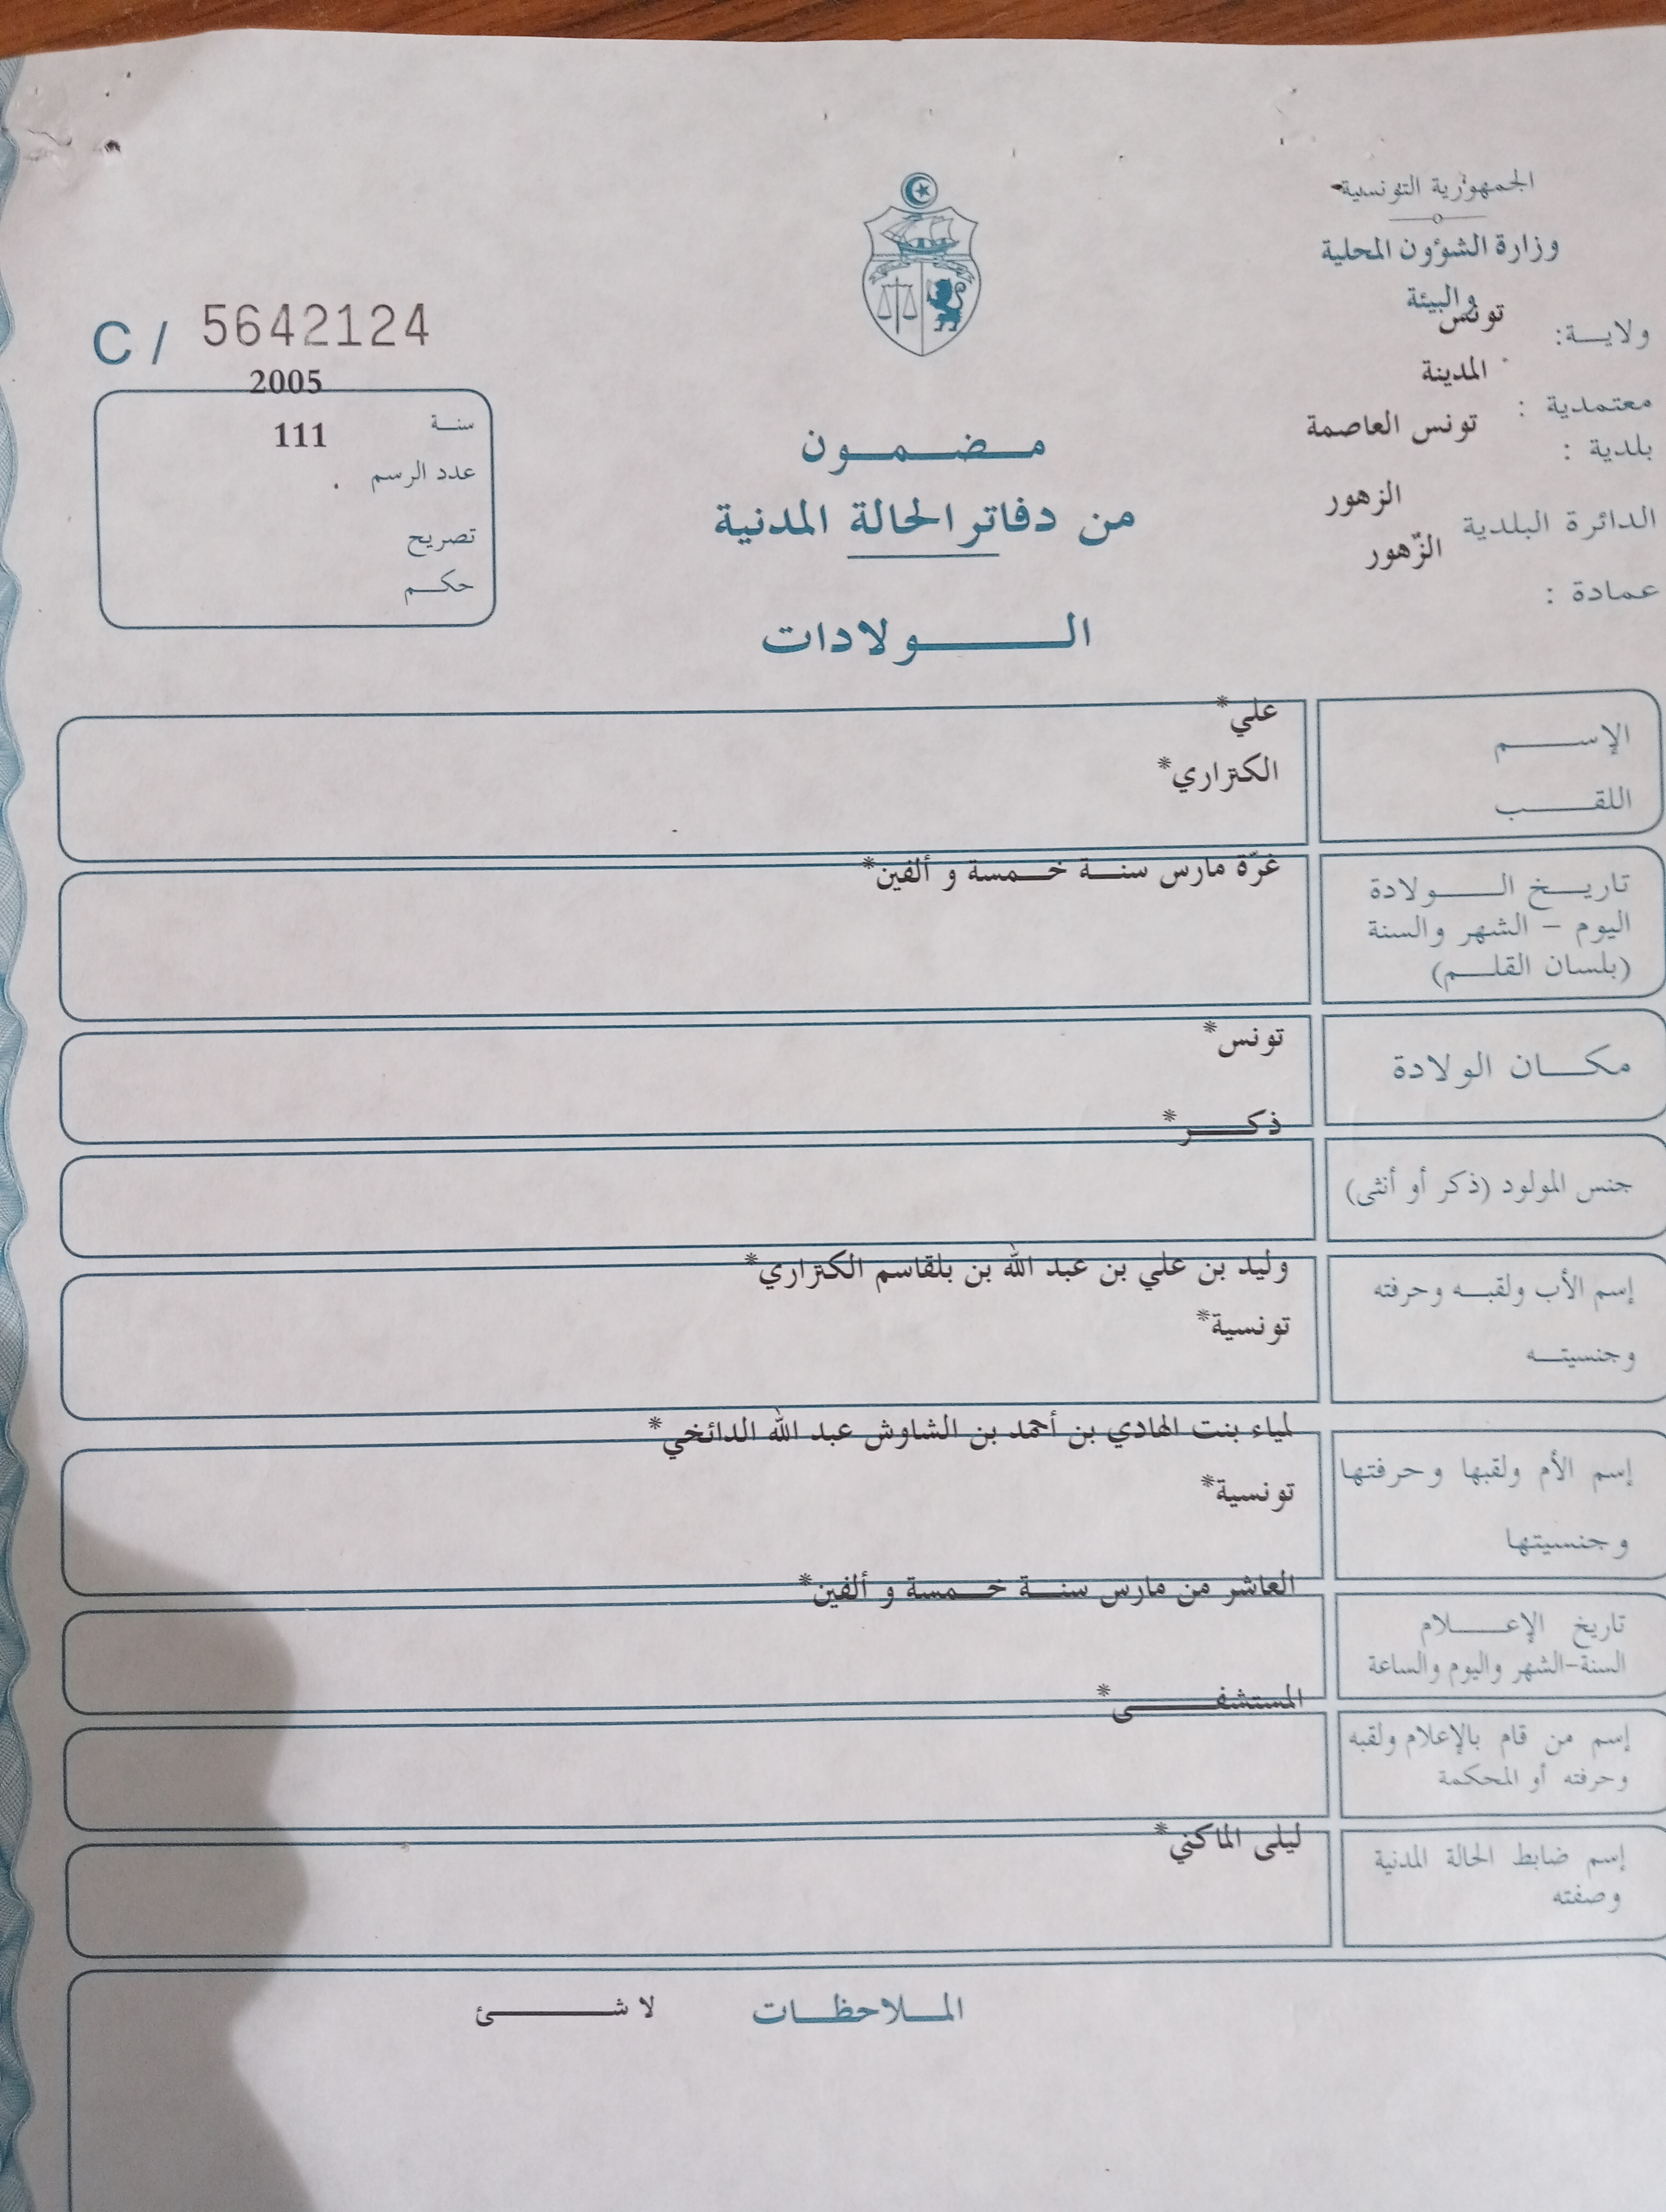 الجمهورية التونسية
وزارة الشؤون المحلية
والبيئة
ولايــة: تونس
معتمدية : المدينة
بلدية : تونس العاصمة
الدائرة البلدية الزهور
عمادة : الزّهور
C / 5642124
سنـة 2005
عدد الرسم 111
تصريح
حكـم
مـضـمـون
من دفاتر الحالة المدنية
الـولادات
الإسـم علي*
اللقـب الكنزاري*
تاريـخ الـولادة غرّة مارس سنـة خـمسة و ألفين*
اليوم - الشهر والسنة
(بلسان القلـم)
مكـان الولادة تونس*
جنس المولود (ذكر أو أنثى) ذكـر*
إسم الأب ولقبـه وحرفته وليد بن علي بن عبد الله بن بلقاسم الكنزاري*
وجنسيتـه تونسية*
إسم الأم ولقبها وحرفتها لمياء بنت الهادي بن أحمد بن الشاوش عبد الله الدائخي*
وجنسيتها تونسية*
تاريخ الإعـلام العاشر من مارس سنـة خـمسة و ألفين*
السنة-الشهر واليوم والساعة
إسم من قام بالإعلام ولقبه المستشفـى*
وحرفته أو المحكمة
إسم ضابط الحالة المدنية ليلى الماكني*
وصفته
المـلاحظـات لا شـئ